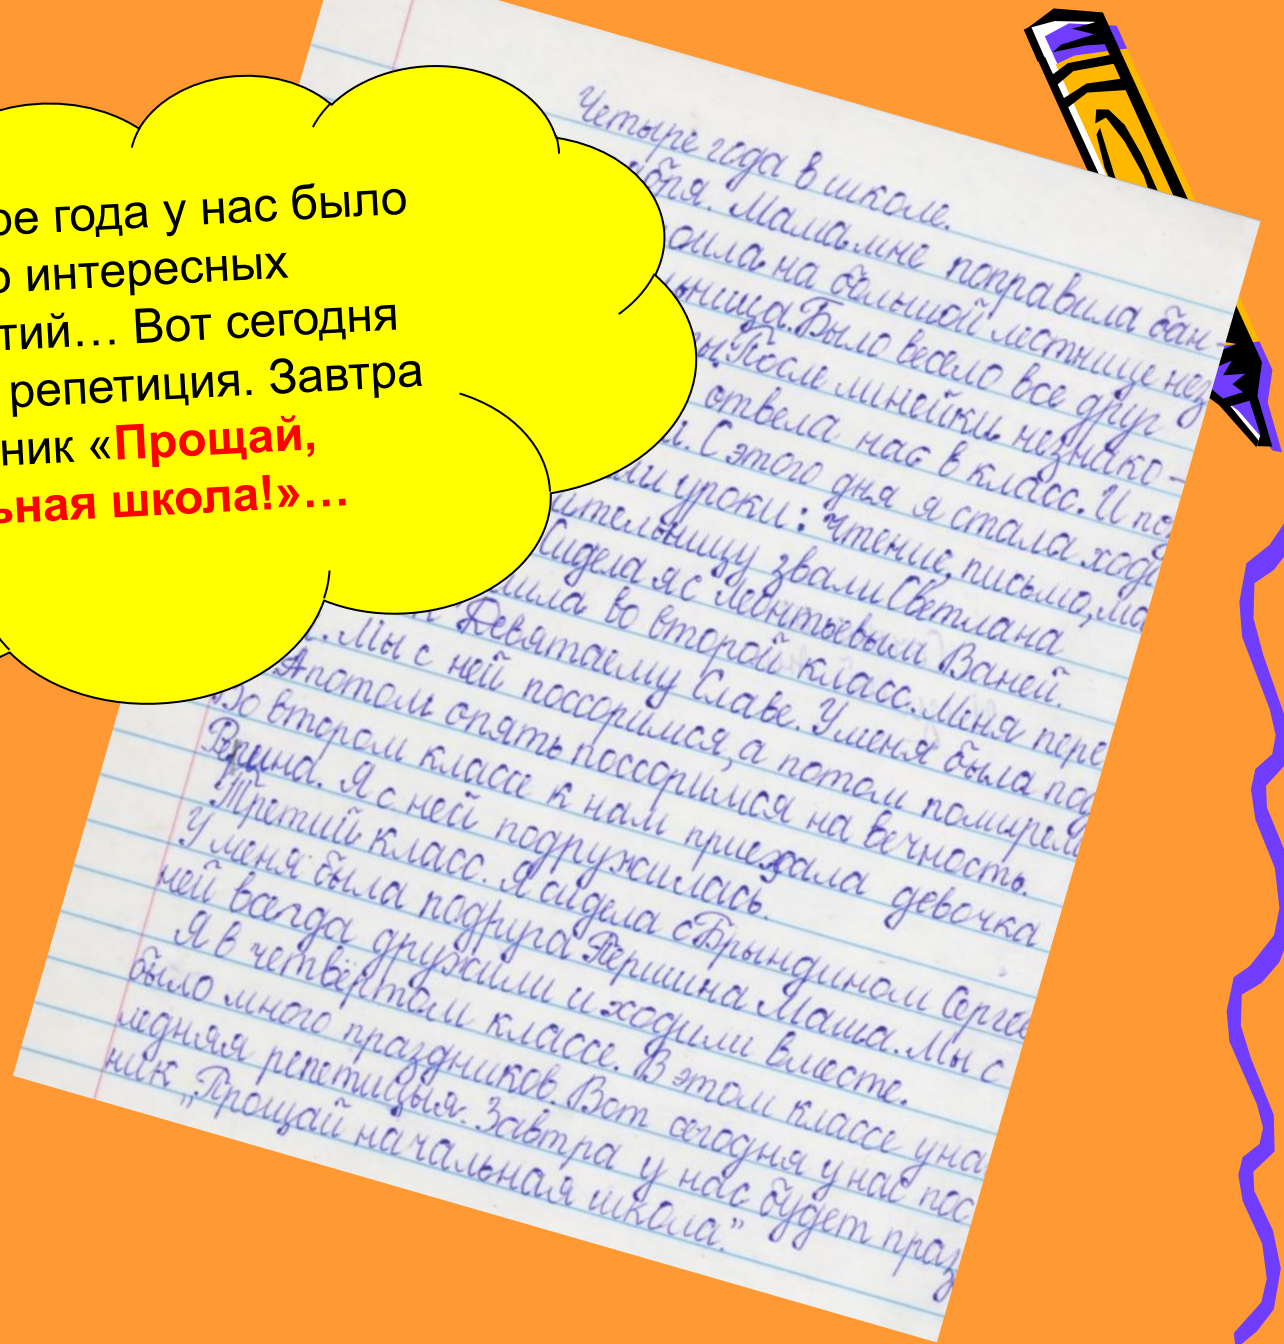 ое года у нас было
о интересных
тий... Вот сегодня
репетиция. Завтра
ник «Прощай,
ьная школа!»...
Четыре года в школе.
бря. Мама мне поправила бан-
оила на большой лестнице нез
ница. Было весело все друг
После линейки незнако-
отвела нас в класс. И по
С этого дня я стала ходи
уроки: чтение, письмо, ма
ительницу звали Светлана
Сидела я с Леонтьевым Ваней.
во второй класс. Меня пере
Девятаему Славе. У меня была под
Мы с ней поссоримся, а потом помирим
Апотом опять поссоримся на вечность.
Во втором классе к нам приехала девочка
Я с ней подружилась.
Третий класс. Я сидела с Брындином Серге
У меня была подруга Першина Маша. Мы с
ней всегда дружили и ходили вместе.
Я в четвёртом классе. В этом классе у на
было много праздников. Вот сегодня у нас пос
ледняя репетицыя. Завтра у нас будет празд
ник „Прощай начальная школа."